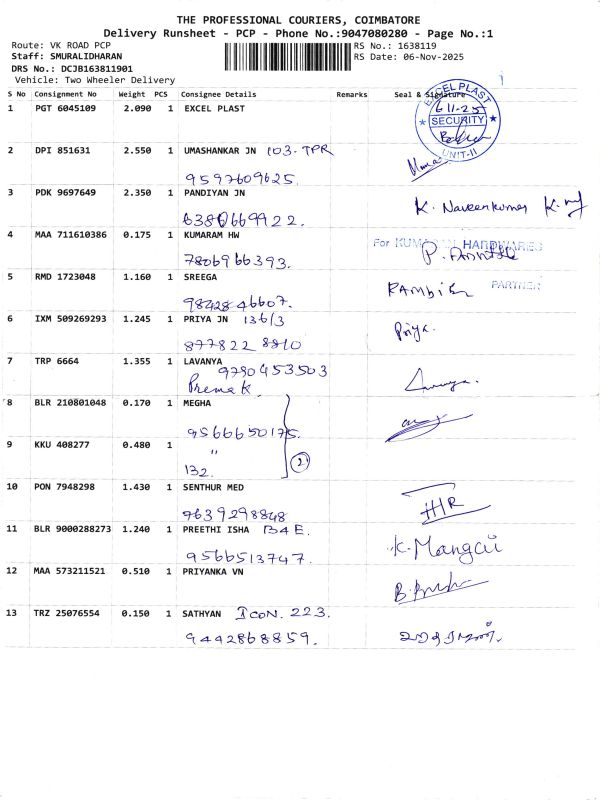 THE PROFESSIONAL COURIERS, COIMBATORE
Delivery Runsheet - PCP - Phone No.:9047080280 - Page No.:1
Route: VK ROAD PCP RS No.: 1638119
Staff: SMURALIDHARAN RS Date: 06-Nov-2025
DRS No.: DCJB163811901
Vehicle: Two Wheeler Delivery
S No Consignment No Weight PCS Consignee Details Remarks Seal & Signature
1 PGT 6045109 2.090 1 EXCEL PLAST
EXCEL PLAST
6-11-25
SECURITY
UNIT-II
2 DPI 851631 2.550 1 UMASHANKAR JN 103-TPR
9597609625.
3 PDK 9697649 2.350 1 PANDIYAN JN
6380669922. K. Naveenkumar
4 MAA 711610386 0.175 1 KUMARAM HW
For HARDWARES
7806966393.
5 RMD 1723048 1.160 1 SREEGA
PARTNER
9842846607.
6 IXM 509269293 1.245 1 PRIYA JN 136/3
8778228810 Priya.
7 TRP 6664 1.355 1 LAVANYA
9790453503
Prema K.
8 BLR 210801048 0.170 1 MEGHA
9566650175.
9 KKU 408277 0.480 1 "
132. 2
10 PON 7948298 1.430 1 SENTHUR MED
7639298848
11 BLR 9000288273 1.240 1 PREETHI ISHA B4E.
9566513747. K. Mangai
12 MAA 573211521 0.510 1 PRIYANKA VN
13 TRZ 25076554 0.150 1 SATHYAN ICON. 223.
9442868859.